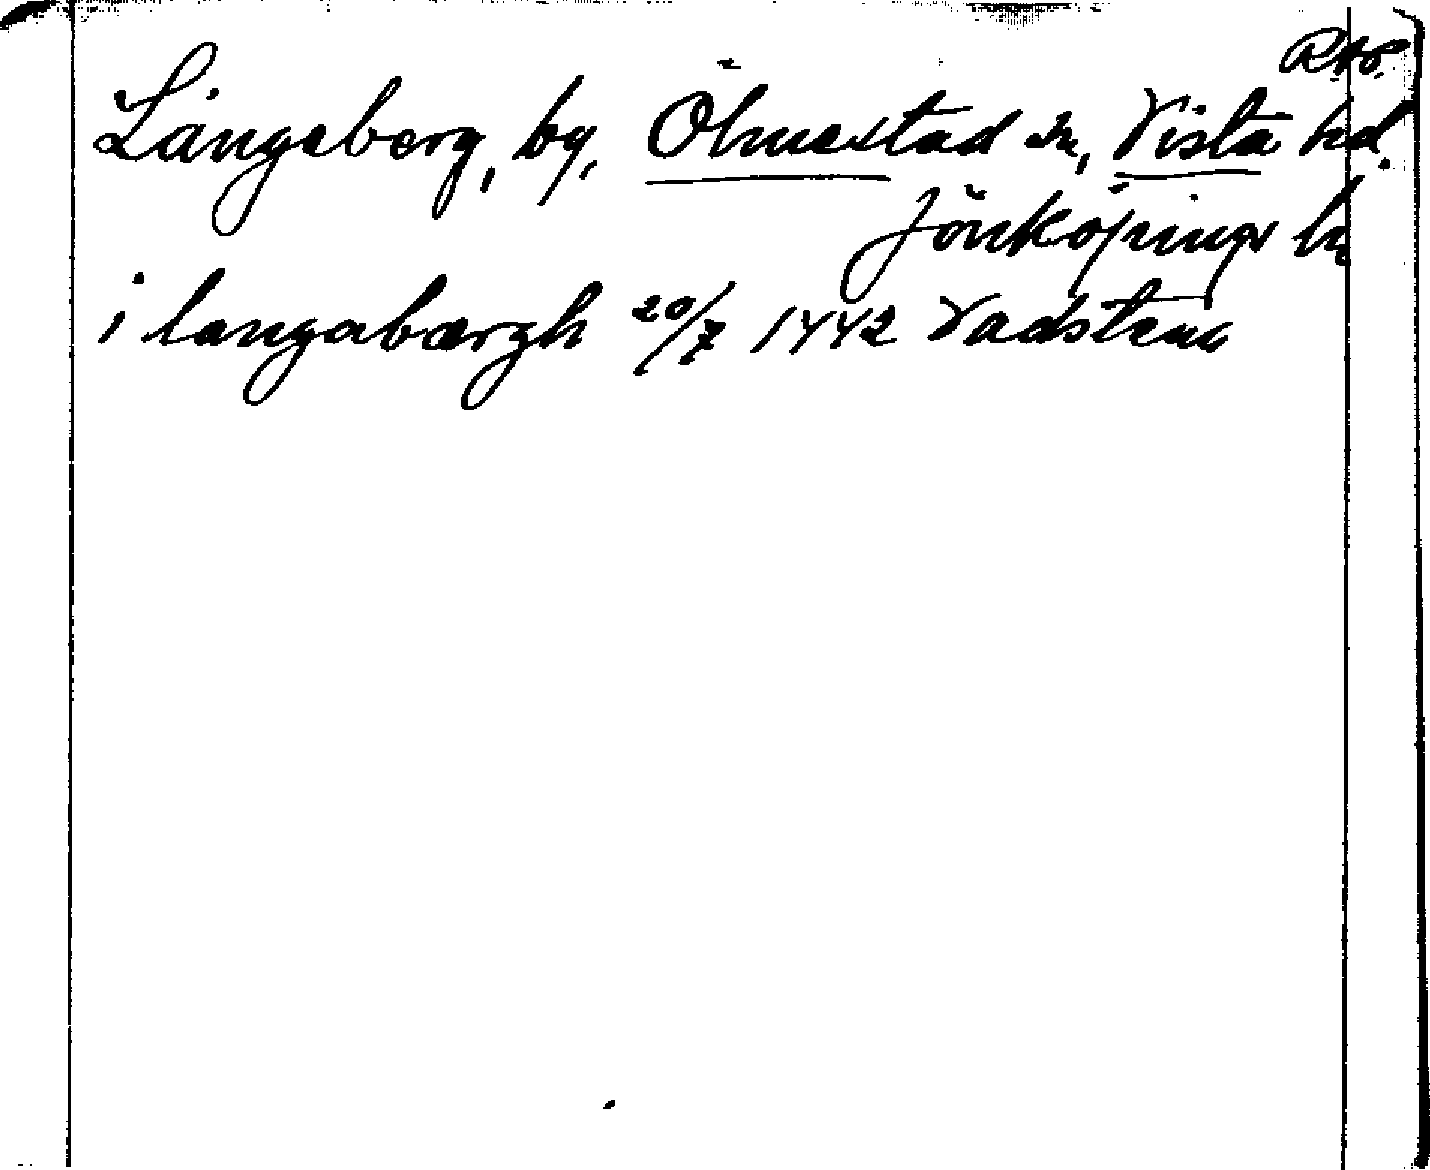 RAP.
Långeberg, by, Ölmestad sn, Vista hd.
Jönköpings ln
i langabærgh 20/7 1442 Vadstena